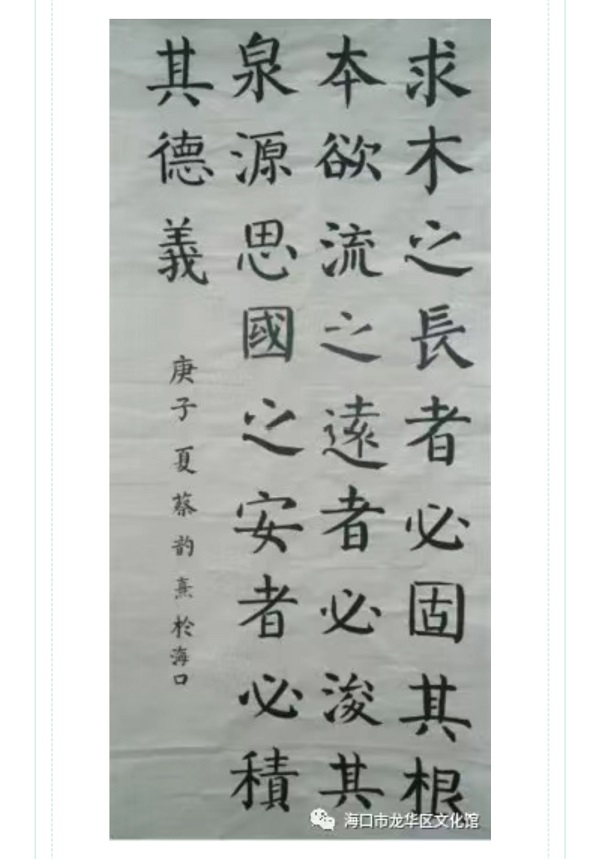 求木之長者必固其根
本欲流之遠者必浚其
泉源思國之安者必積
其德義
庚子夏蔡韵熹於海口
海口市龙华区文化馆